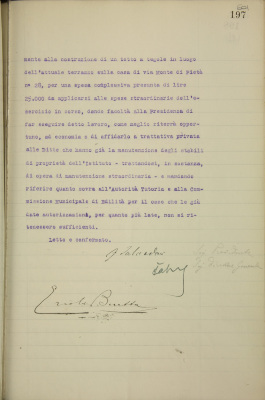 197
mento alla costruzione di un tetto a tegole in luogo
dell'attuale terrazzo sulla casa di via Ponte di Nietà
n° 28, per una spesa complessiva presunta di lire
25.000 da applicarsi alle spese straordinarie dell'e-
sercizio in corso, dando facoltà alla Presidenza di
far eseguire detto lavoro, come meglio riterrà oppor-
tuno, ad economia o di affidarlo a trattativa privata
alle Ditte che hanno già la manutenzione degli stabili
di proprietà dell'Istituto - trattandosi, in sostanza,
di opera di manutenzione straordinaria - e mandando
riferire quanto sovra all'Autorità Tutoria e alla Com-
missione Municipale di Edilità per il caso che le già
date autorizzazioni, per quanto più late, non si ri-
tenessero sufficienti.
Letto e confermato.